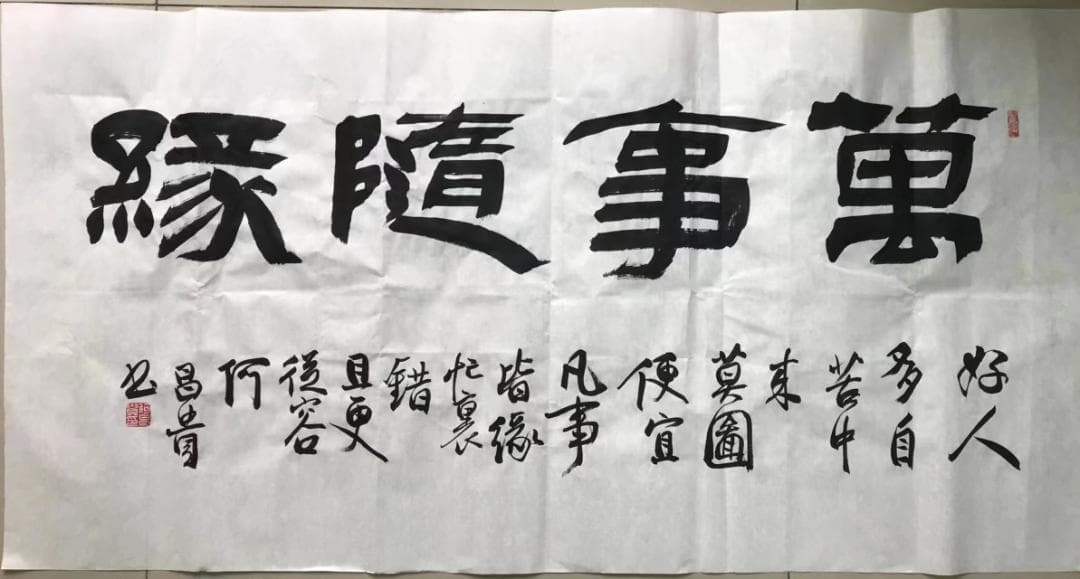 萬事隨緣
好人
多自
苦中
来
莫圖
便宜
凡事
皆緣
忙裏
錯
且更
從容
何
昌貴
书